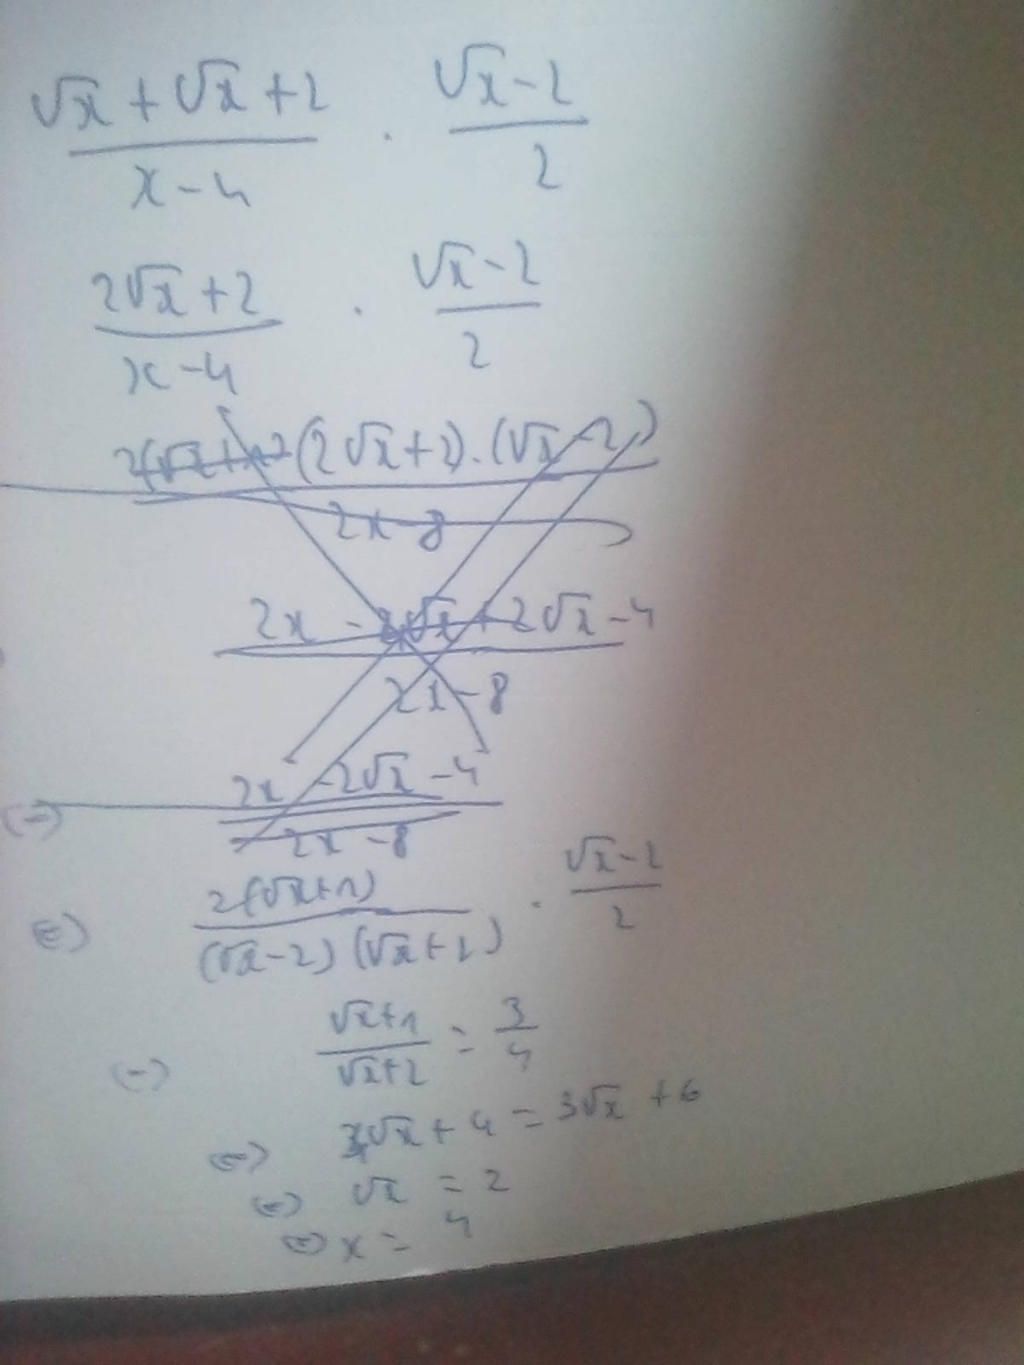 (√x + √x + 2)/(x - 4) · (√x - 2)/2
(2√x + 2)/(x - 4) · (√x - 2)/2
(2√x + 2).(√x - 2)/(2x - 8)
(2x - 2√x + 2√x - 4)/(2x - 8)
(=) (2x - 2√x - 4)/(2x - 8)
(=) 2(√x+1)/((√x-2)(√x+2)) · (√x-2)/2
(=) (√x+1)/(√x+2) = 3/4
(=) 4√x + 4 = 3√x + 6
(=) √x = 2
(=) x = 4